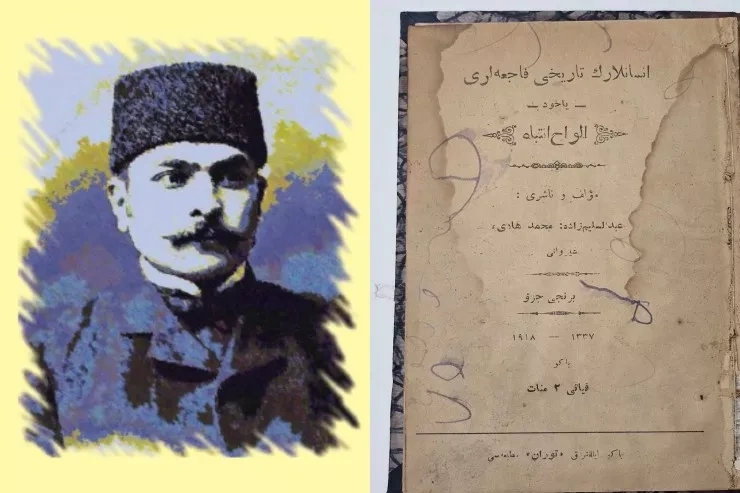 انسانلارك تاريخى فاجعه‌لرى
— ياخود —
الواح انتباه
مؤلف و ناشرى :
عبدالسليم‌زاده: محمد هادى،
شيروانى
برنجى جزؤ
١٣٣٧ — ١٩١٨
باكو
فيأتى ٢ منات
باكو «توران»